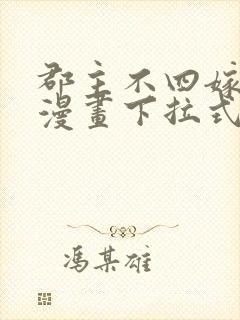 郡主不四嫁
漫畫下拉式
馮某雄